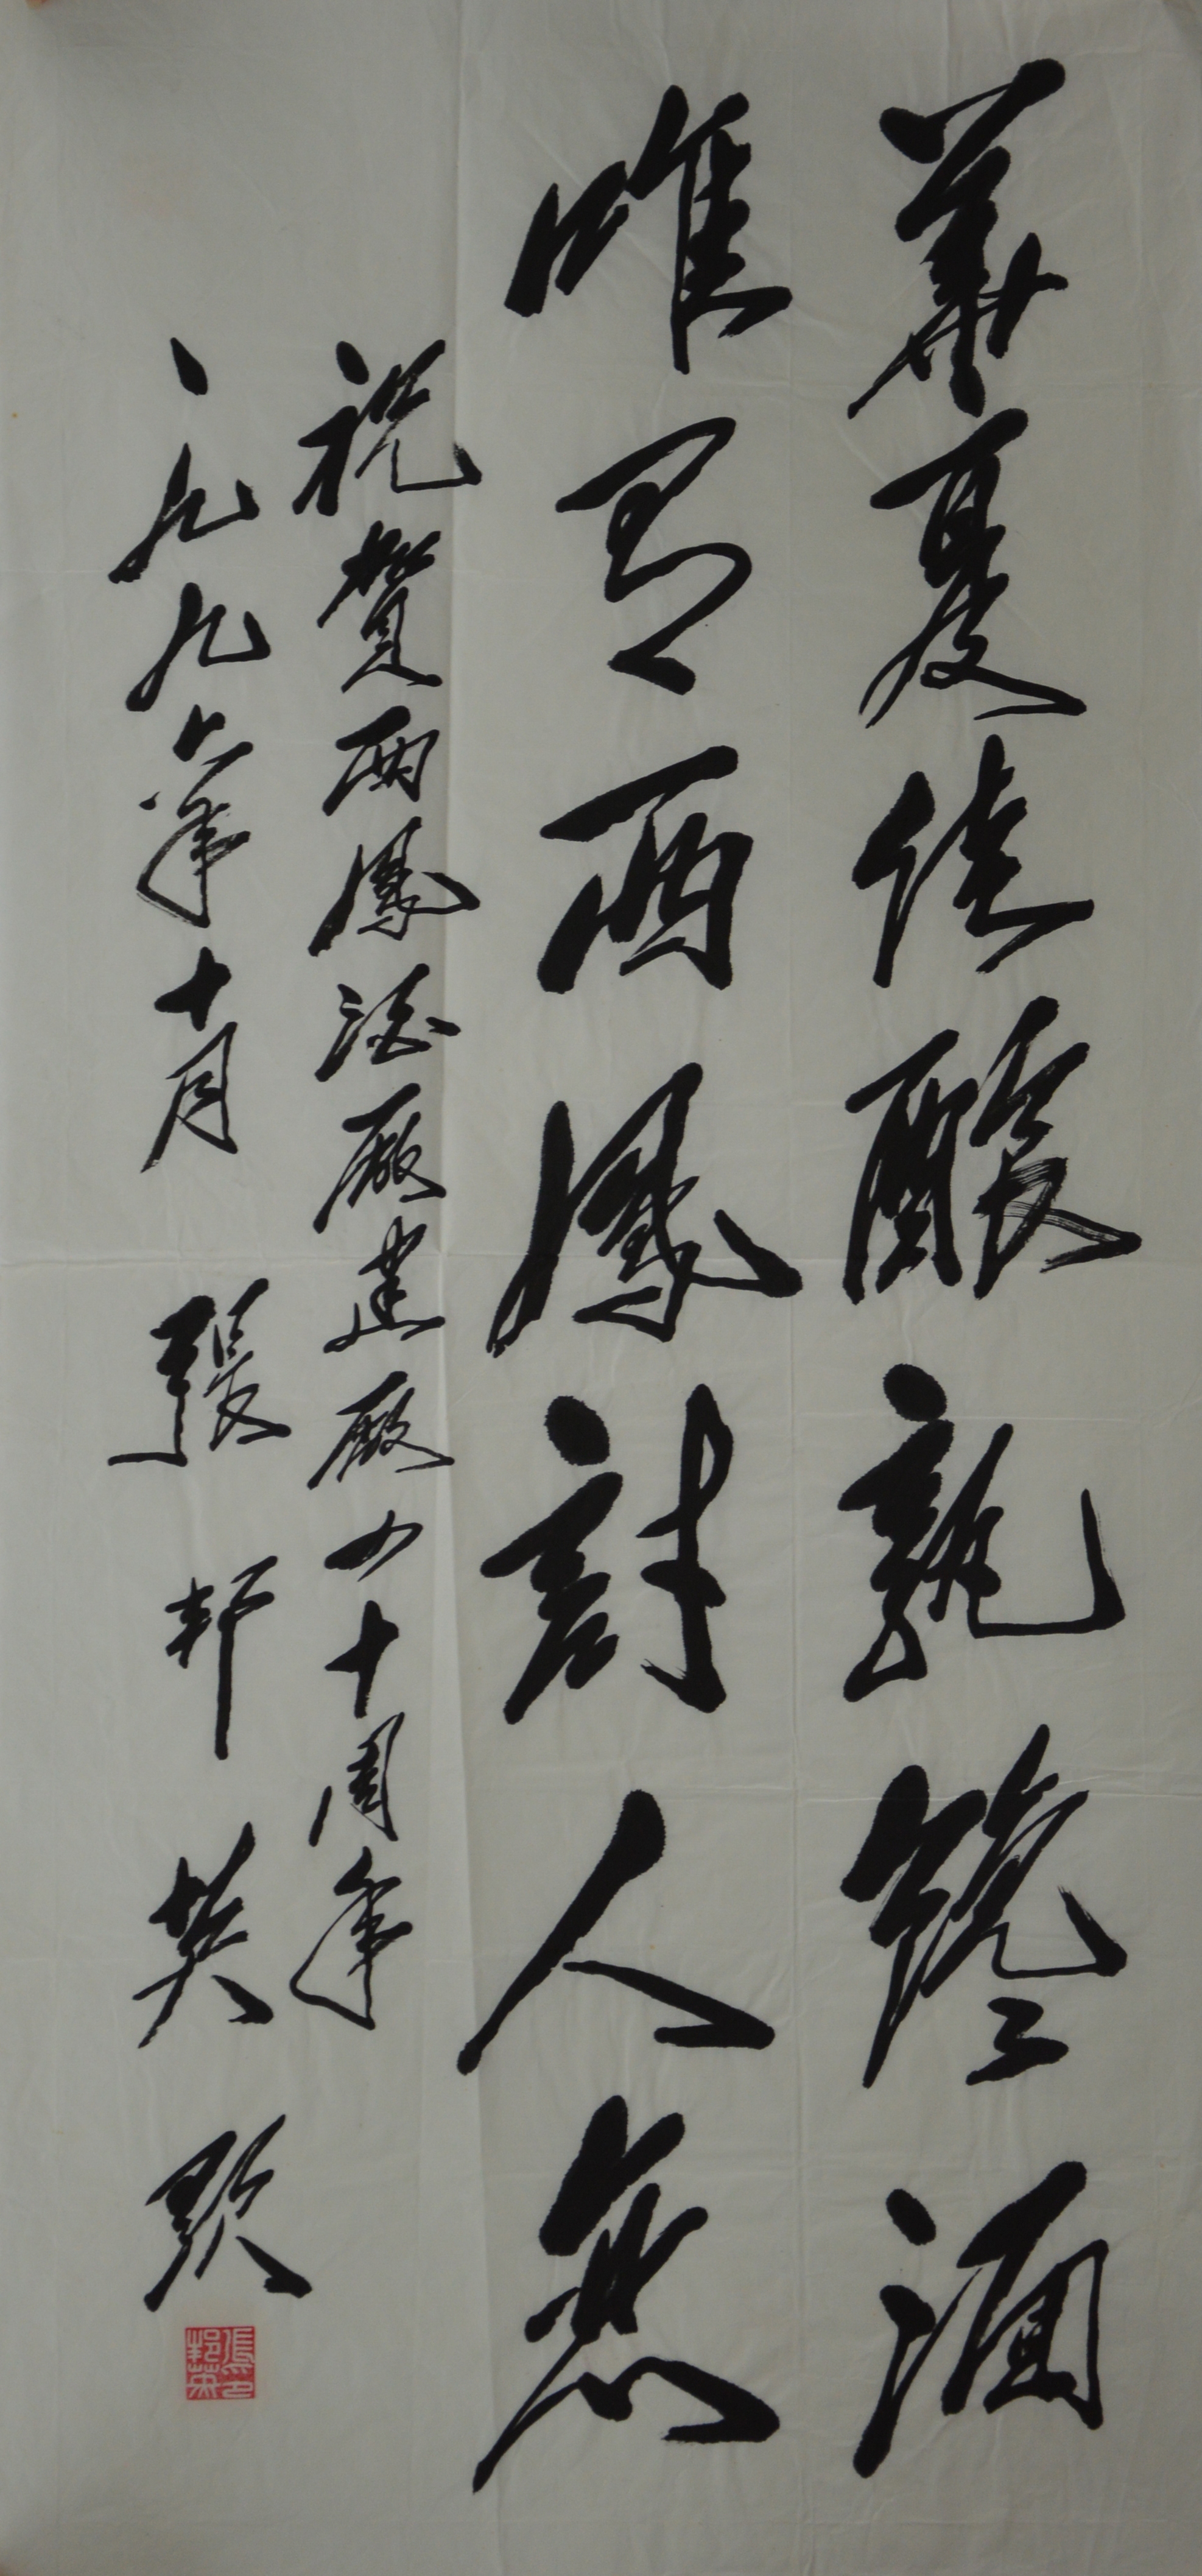 華夏佳釀孰饞涎
唯有西鳳詩人戀
祝賀西鳳酒廠建廠四十周年
一九九六年十月 張邦英 題
張邦英印